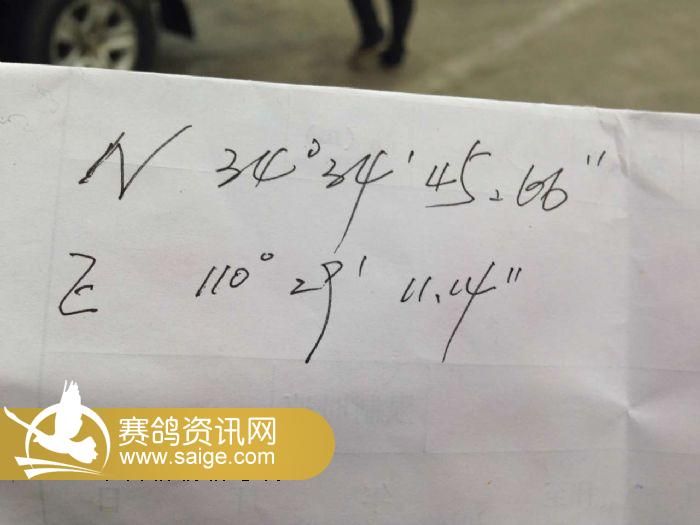 N 34°34′45.66″
E 110°29′11.14″
赛鸽资讯网
www.saige.com